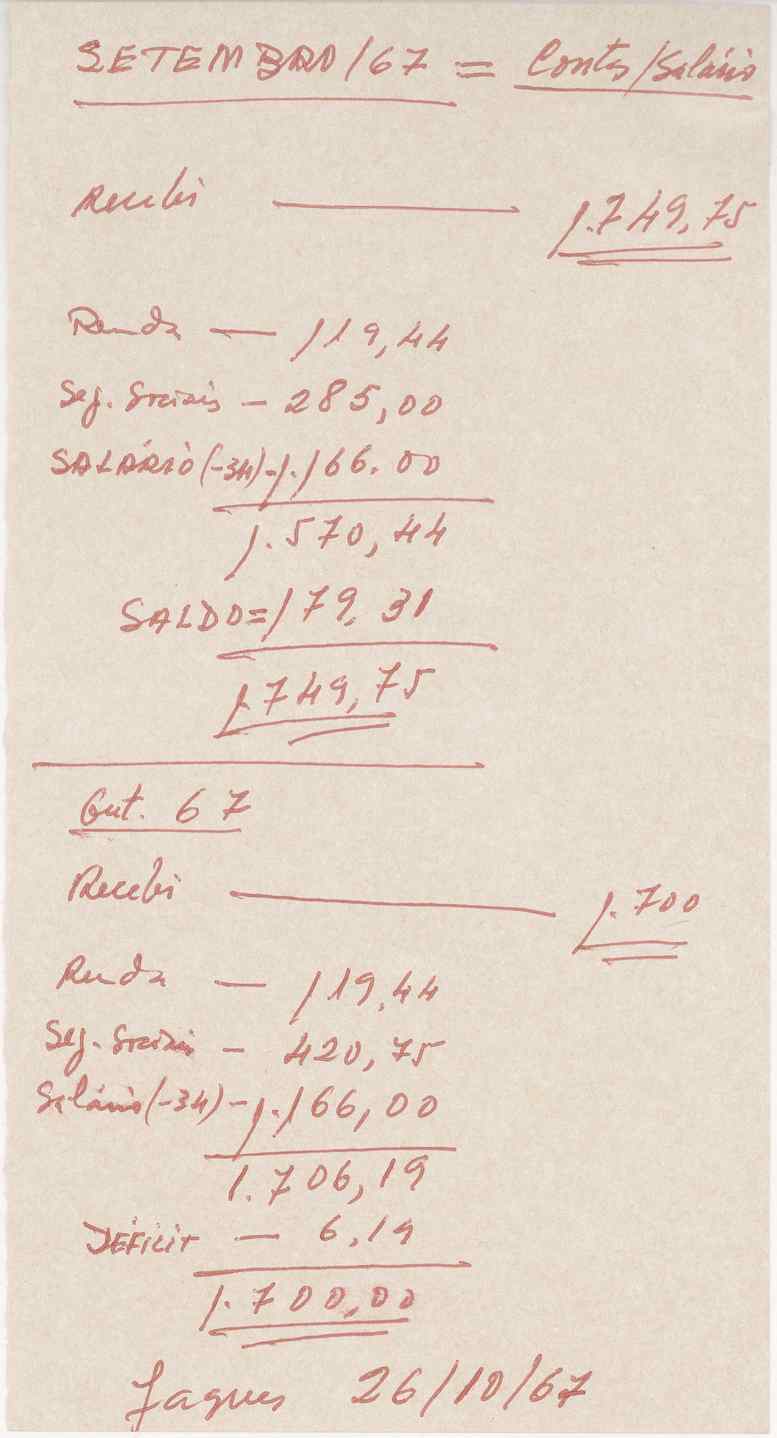 SETEMBRO/67 = Contas/Salário
Recebi — 1.749,75
Renda — 119,44
Seg. Sociais — 285,00
SALÁRIO (-34) - 1.166.00
1.570,44
SALDO = 179.31
1.749,75
Out. 67
Recebi — 1.700
Renda — 119,44
Seg. Sociais — 420,75
Salário (-34) - 1.166,00
1.706,19
DÉFICIT — 6,19
1.700,00
Jaques 26/10/67